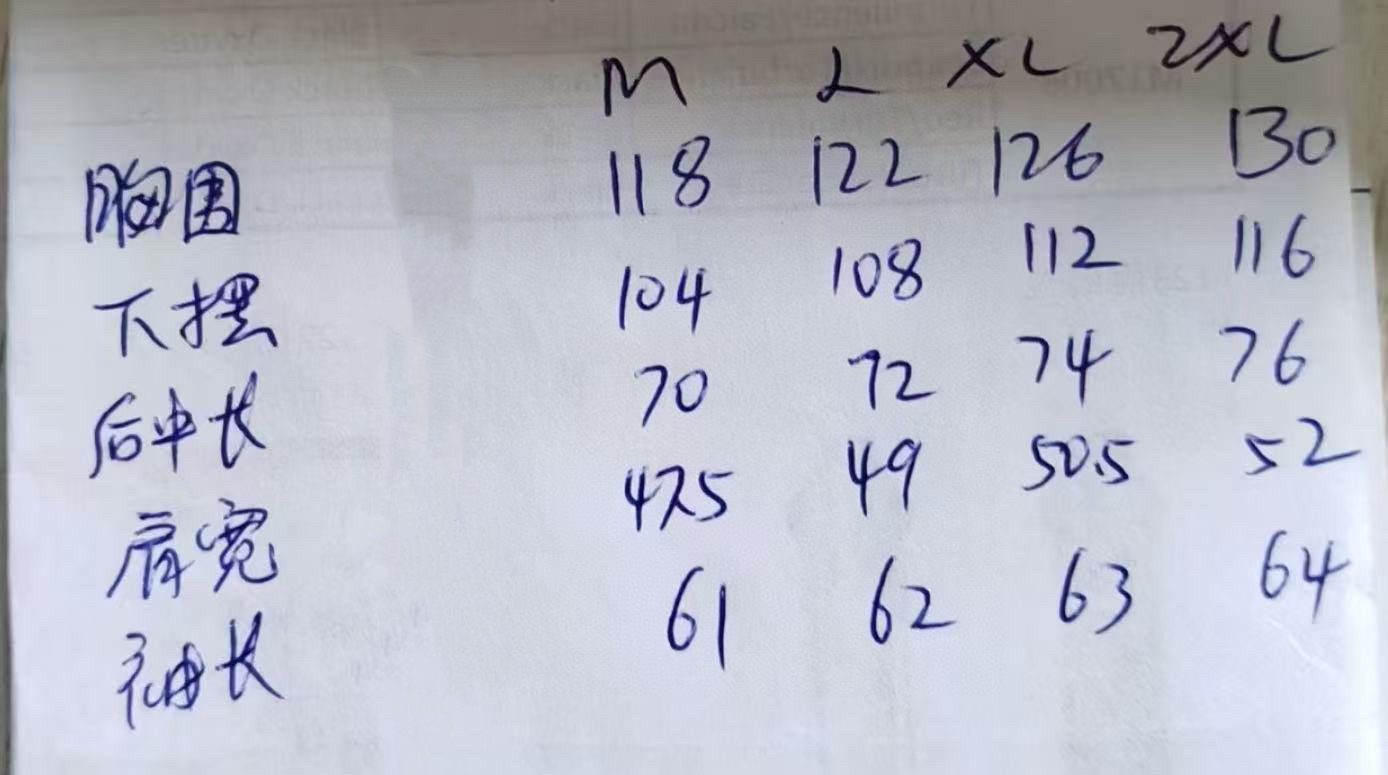 M L XL 2XL
胸围 118 122 126 130
下摆 104 108 112 116
后中长 70 72 74 76
肩宽 47.5 49 50.5 52
袖长 61 62 63 64